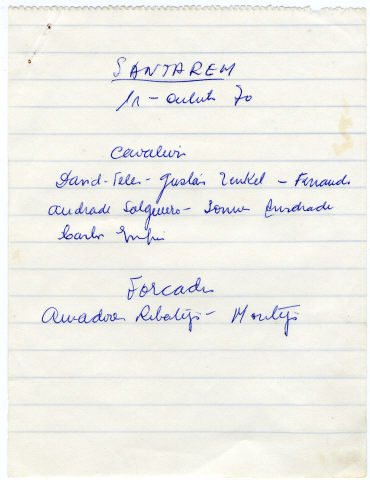 SANTAREM
11 - outubro 70
Cavaleiros
David Teles - Gustavo Zenkel - Fernando
Andrade Salgueiro - Sommer Andrade
Carlos
Forcados
Amadores Ribatejo - Montijo